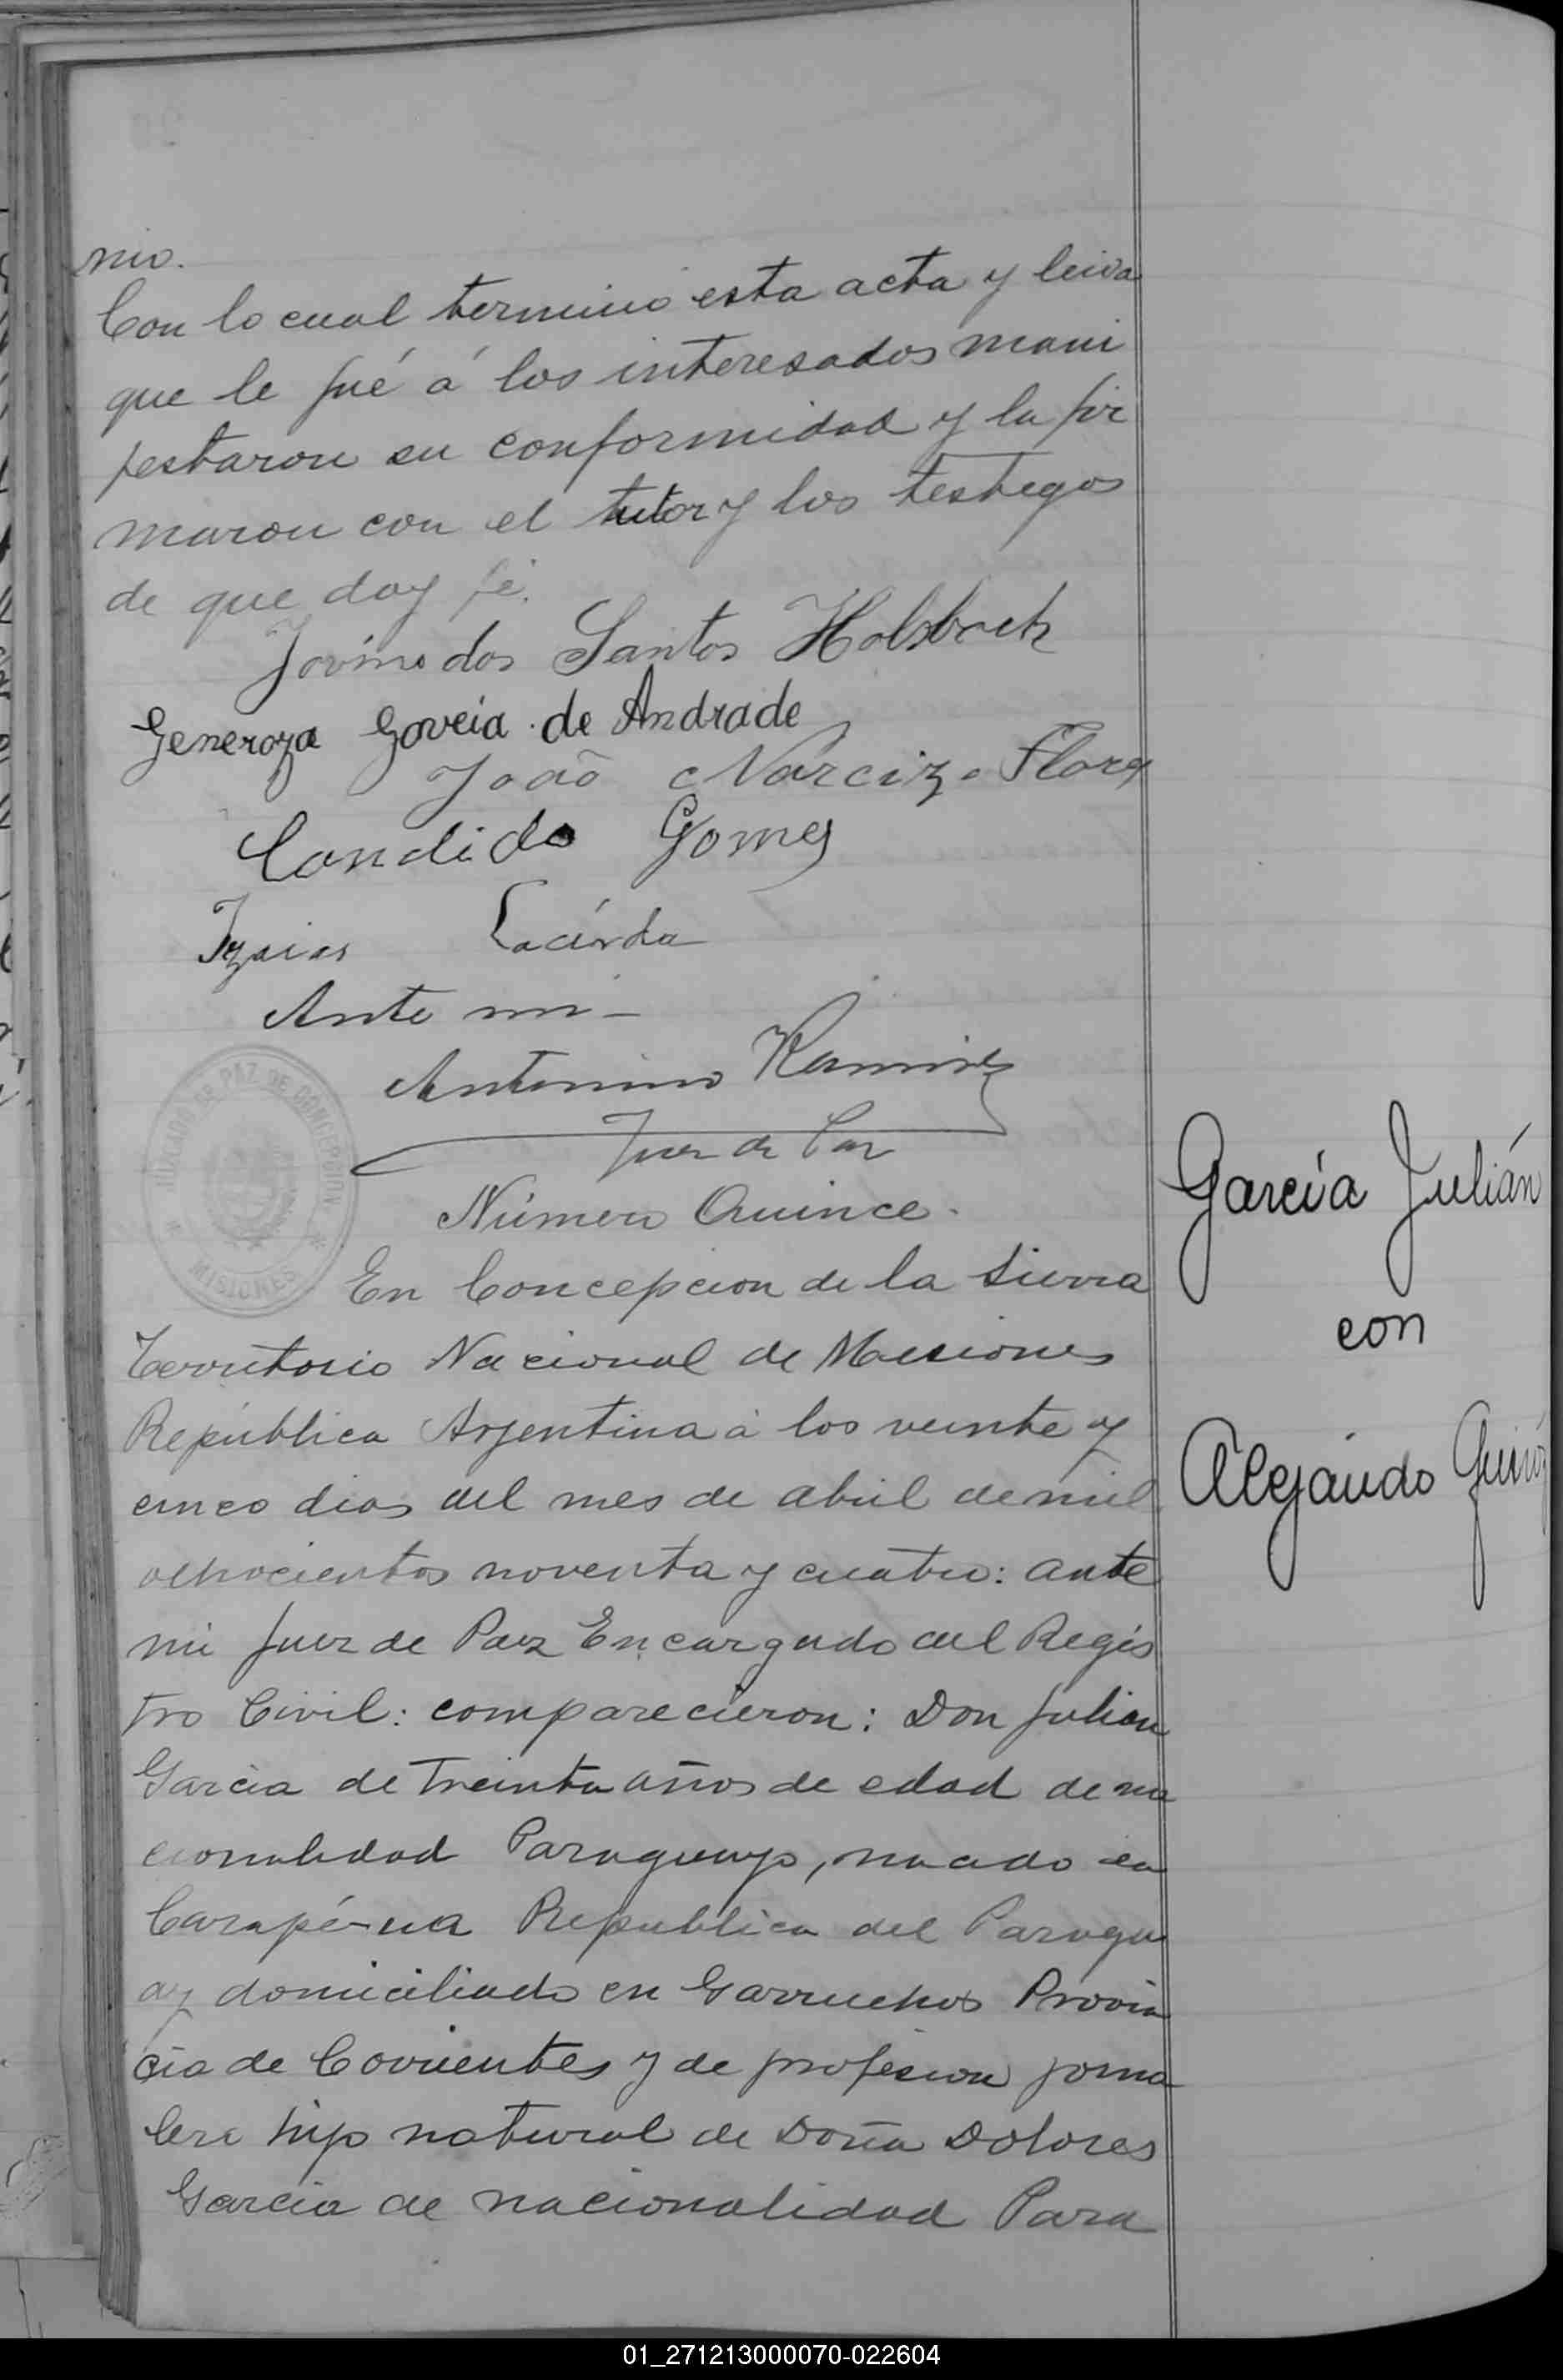 nio.
Con lo cual terminó esta acta y leida
que le fué á los interesados mani
festaron su conformidad y la fir
maron con el tutor y los testigos
de que doy fé.
Jovino dos Santos Holsbach
Generoza Goveia de Andrade
João Narcizo Flores
Candido Gomes
Izaias Lacérda
Ante mi
Antonino Ramirez
Juez de Paz
JUZGADO DE PAZ DE CONCEPCION
* MISIONES *
Número Quince.
En Concepcion de la Sierra
Territorio Nacional de Misiones
República Argentina á los veinte y
cinco dias del mes de abril de mil
ochocientos noventa y cuatro: ante
mi Juez de Paz Encargado del Regis
tro Civil: comparecieron: Don Julian
Garcia de treinta años de edad de na
cionalidad Paraguayo, nacido en
Carapé-uá Republica del Paragu
ay domiciliado en Garruchos Provin
cia de Corrientes y de profesion jorna
lero hijo natural de Doña Dolores
Garcia de nacionalidad Para
García Julián
con
Alejandо Quiróz
01_271213000070-022604